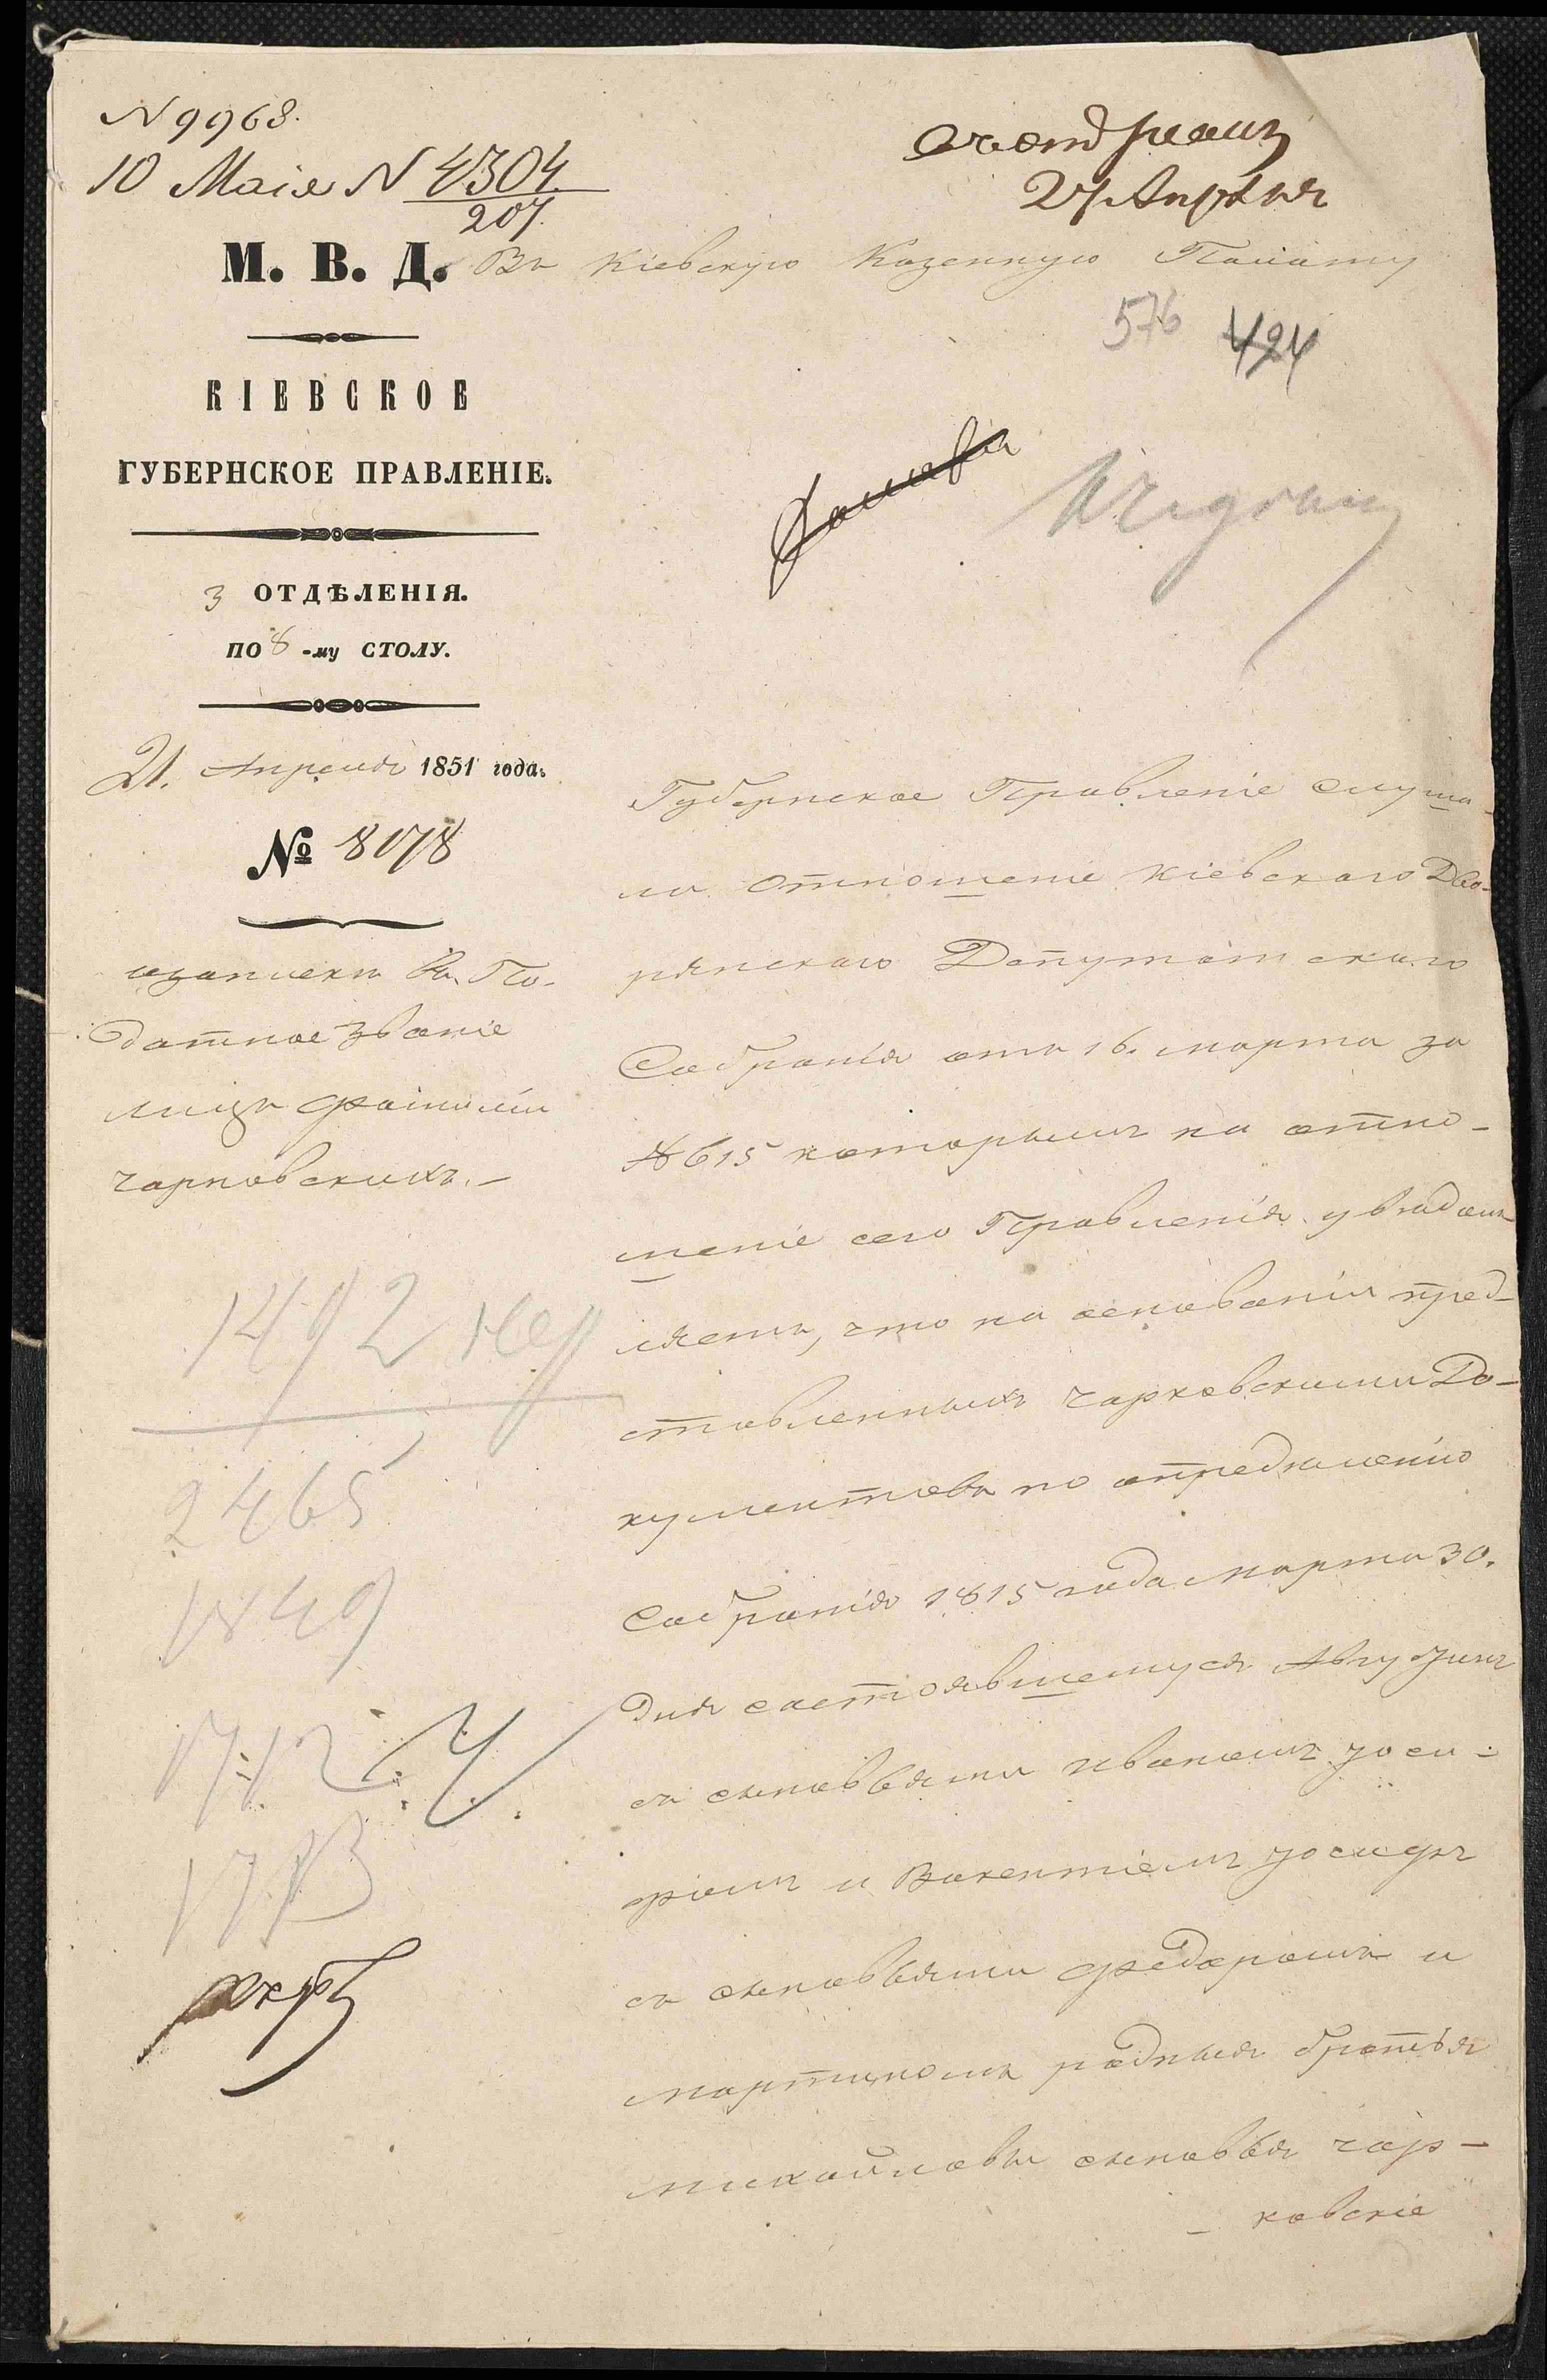 N 9968.
10 Маія N 4304
207.
27 Апрѣля
М. В. Д.
Въ Кіевскую Казенную Палату
576 424
КІЕВСКОЕ
ГУБЕРНСКОЕ ПРАВЛЕНІЕ.
3 ОТДѢЛЕНІЯ.
ПО 8 -му СТОЛУ.
21. Апреля 1851 года.
№ 8078
Въ По-
датное званіе
лицъ фамиліи
чарновскихъ.–
Губернское Правленіе слуша-
ли отношеніе Кіевскаго Дво-
рянскаго Депутатскаго
Собранія отъ 16. марта за
№ 615 которымъ на отно-
шеніе сего Правленія увѣдом-
ляетъ, что на основаніи пред-
ставленныхъ чарковскими До-
кументовъ по опредѣленію
Собранія 1815 года марта 30.
дня состоявшемуся
съ сыновьями Иваномъ Іоси-
фомъ и Викентіемъ Іосифъ
съ сыновьями Федоромъ и
мартиномъ родныя братья
михайловы сыновья чар-
ковскіе
2465
1849